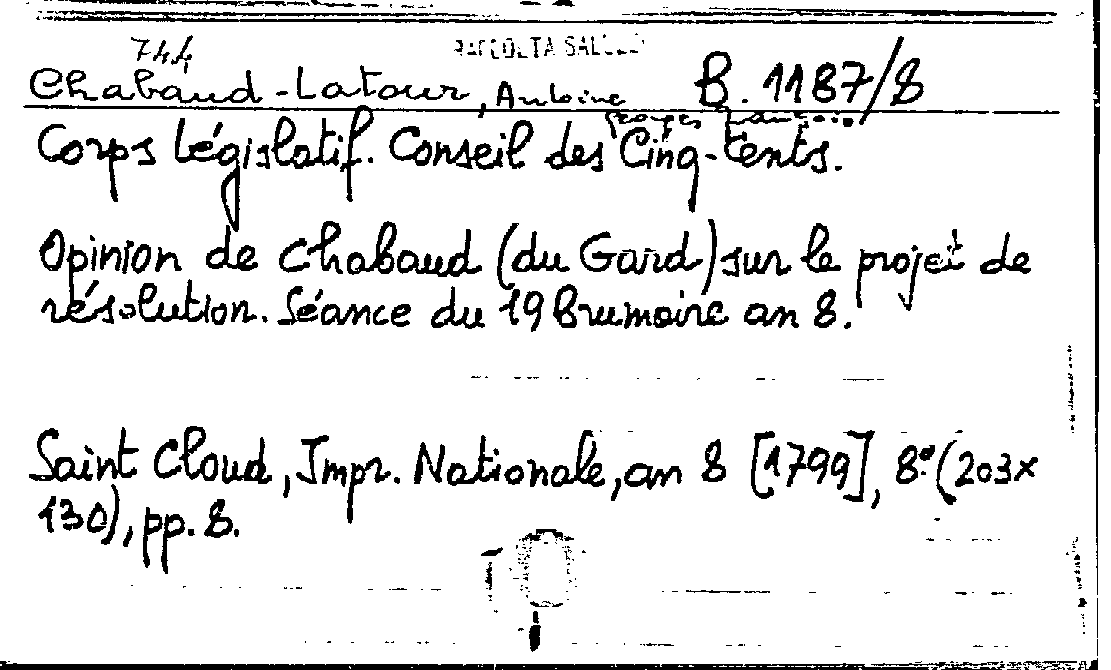 744
RACCOLTA SAL
Chabaud-Latour, Antoine B. 1187/8
Georges François
Corps législatif. Conseil des Cinq-Cents.
Opinion de Chabaud (du Gard) sur le projet de
résolution. Séance du 19 Brumaire an 8.
Saint Cloud, Impr. Nationale, an 8 [1799], 8° (203×
130), pp. 8.